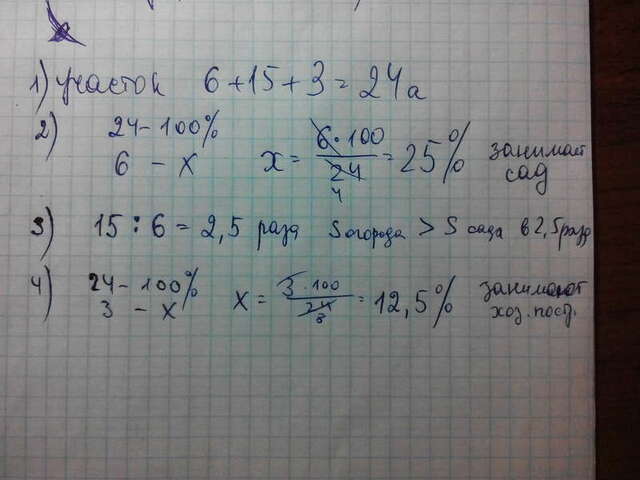 1) участок 6+15+3=24а
2) 24 - 100%
6 - х х = 6·100/24 = 25% занимает сад
4
3) 15 : 6 = 2,5 раза Sогорода > S сада в 2,5 раза
4) 24 - 100%
3 - х х = 3·100/24 = 12,5% занимают хоз. пост.
8